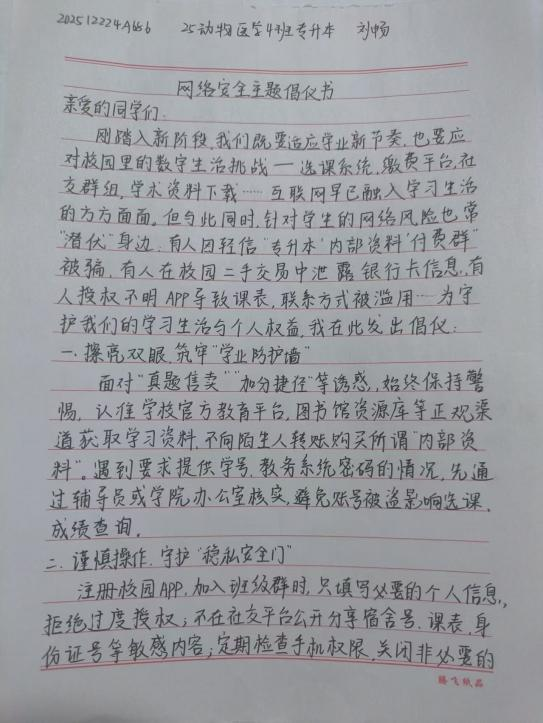 202512224A656 25动物医学4班专升本 刘畅
网络安全主题倡仪书
亲爱的同学们:
刚踏入新阶段,我们既要适应学业新节奏,也要应
对校园里的数字生活挑战——选课系统,缴费平台,社
交群组,学术资料下载……互联网早已融入学习生活
的方方面面。但与此同时,针对学生的网络风险也常
“潜伏”身边:有人因轻信“专升本‘内部资料’付费群”
被骗,有人在校园二手交易中泄露银行卡信息,有
人授权不明APP导致课表,联系方式被滥用……为守
护我们的学习生活与个人权益,我在此发出倡仪:
一.擦亮双眼,筑牢“学业防护墙”
面对“真题售卖”“加分捷径”等诱惑,始终保持警
惕,认准学校官方教育平台,图书馆资源库等正观渠
道获取学习资料,不向陌生人转账购买所谓“内部资
料”。遇到要求提供学号,教务系统密码的情况,先通
过辅导员或学院办公室核实,避免账号被盗影响选课,
成绩查询。
二.谨慎操作,守护“稳私安全门”
注册校园APP,加入班级群时,只填写必要的个人信息,
拒绝过度授权;不在社交平台公开分享宿舍号.课表,身
份证号等敏感内容;定期检查手机权限,关闭非必要的
腾飞纸品